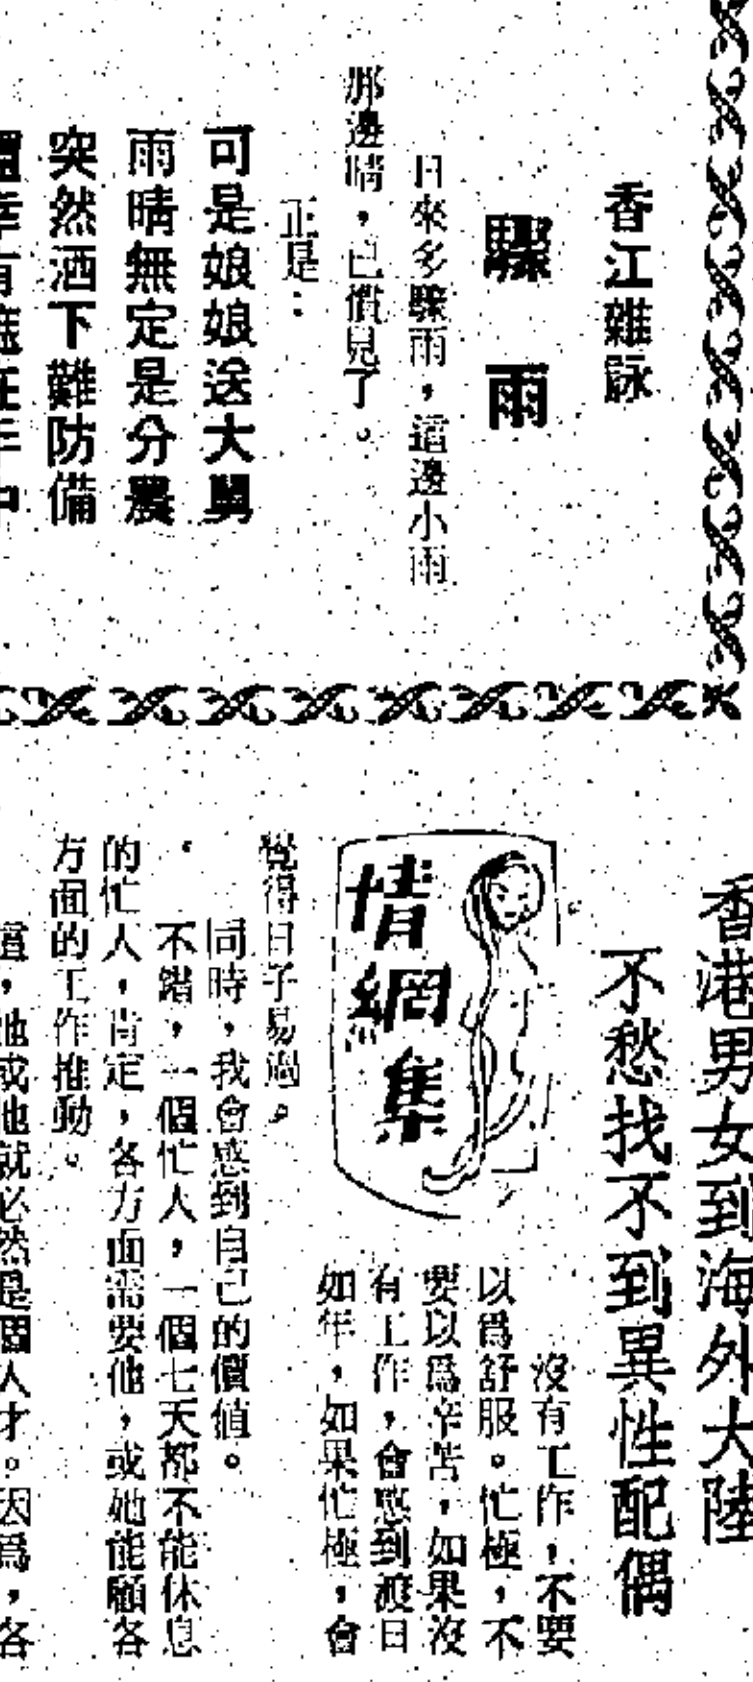 香江雜詠
驟雨
日來多驟雨，這邊小雨
那邊晴，已慣見了。
正是：
可是娘娘送大舅
雨晴無定是分農
突然洒下難防備
香港男女到海外大陸
不愁找不到異性配偶
情網集
沒有工作，不要
以爲舒服。忙極，不
要以爲辛苦，如果沒
有工作，會感到渡日
如年，如果忙極，會
覺得日子易過。
同時，我會感到自己的價值。
不錯，一個忙人，一個七天都不能休息
的忙人，肯定，各方面需要他，或她能顧各
方面的工作推動。
，她或他就必然是個人才。因爲，各